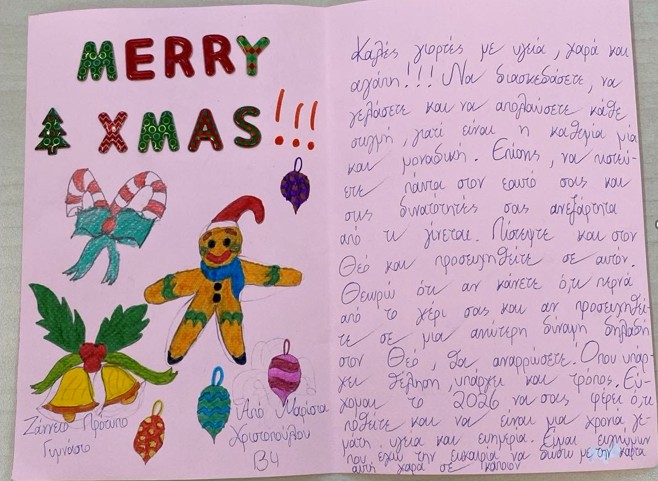 MERRY
XMAS!!!
Ζάννειο Πρότυπο
Γυμνάσιο
Από Μαρίσια
Χριστοπούλου
Β4
Καλές γιορτές με υγεία, χαρά και
αγάπη!!! Να διασκεδάσετε, να
γελάσετε και να απολαύσετε κάθε
στιγμή, γιατί είναι η καθεμία μία
και μοναδική. Επίσης, να πιστεύ-
ετε πάντα στον εαυτό σας και
στις δυνατότητές σας ανεξάρτητα
από τι γίνεται. Πιστεψτε και στον
Θεό και προσευχηθείτε σε αυτόν.
Θεωρώ ότι αν κάνετε ό,τι περνά
από το χέρι σας και αν προσευχηθεί-
τε σε μια ανώτερη δύναμη δηλαδή
στον Θεό, θα αναρρώσετε. Όπου υπάρ-
χει θέληση υπάρχει και τρόπος. Εύ-
χομαι το 2026 να σας φέρει ό,τι
ποθείτε και να είναι μια χρονιά γε-
μάτη υγεία και ευημερία. Είμαι ευγνώμων
που έχω την ευκαιρία να δώσω με την κάρτα
αυτή χαρά σε κάποιον